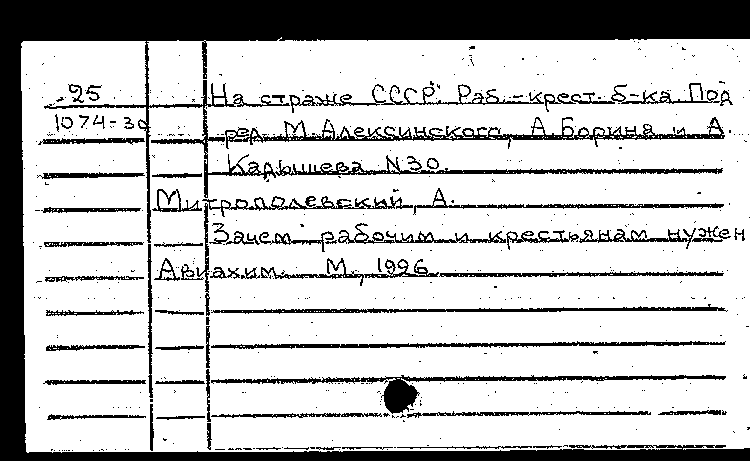 25
На страже СССР. Раб.-крест. б-ка. Под
1074-30
ред. М. Алексинского, А. Борина и А.
Кадышева N30.
Митрополевский, А.
Зачем рабочим и крестьянам нужен
Авиахим. М., 1996